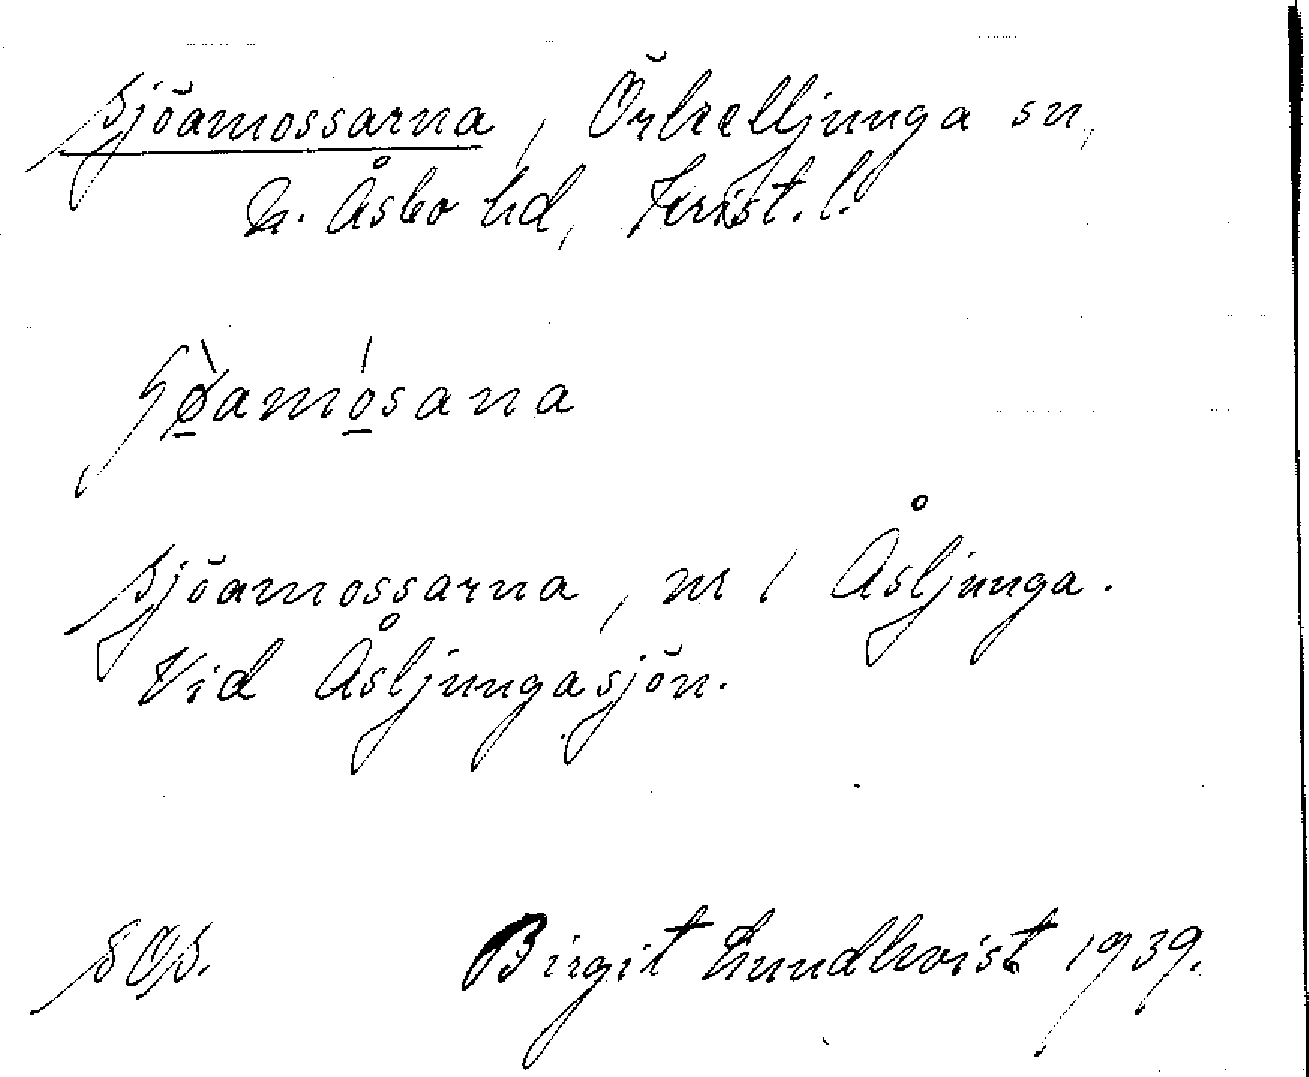 Sjöamossarna, Örkelljunga sn,
N. Åsbo hd, Krist. l.
ʃø̱̀amó̱sana
Sjöamossarna, m / Åsljunga.
Vid Åsljungasjön.
Birgit Lundkvist 1939.